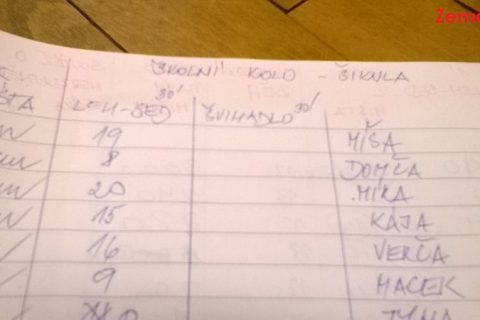 Zem
ŠKOLNÍ KOLO - ŠIKULA
LEH-SED 30' ŠVIHADLO 30'
19 MÍŠA
8 DOMČA
20 MIRA
15 KÁJA
16 VERČA
9 MACEK
TÝNA